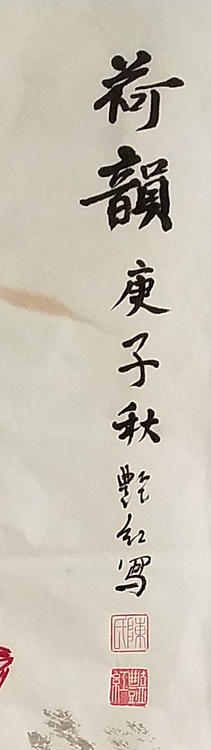 荷韻庚子秋艷紅寫
陳氏
艷紅